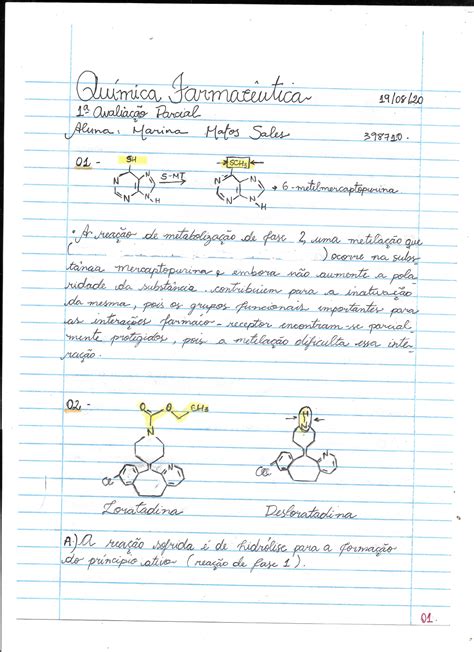 Química Farmacêutica
19/08/20
1ª Avaliação Parcial
Aluna: Marina Matos Sales
398710.
01 -
SH
S-MT
SCH3
N N N N H
N N N N H
→ 6-metilmercaptopurina
• A reação de metabolização de fase 2, uma metilação que
( ) ocorre na subs-
tância mercaptopurina e embora não aumente a pola-
ridade da substância contribuiem para a inativação
da mesma, pois os grupos funcionais importantes para
as interações fármaco-receptor encontram-se parcial
mente protegidos, pois a metilação dificulta essa inte-
ração.
02 -
O O CH3
N
N
Cl
H
N
N
Cl
Loratadina
Desloratadina
A) A reação sofrida é de hidrólise para a formação
do princípio ativo (reação de fase 1).
01.